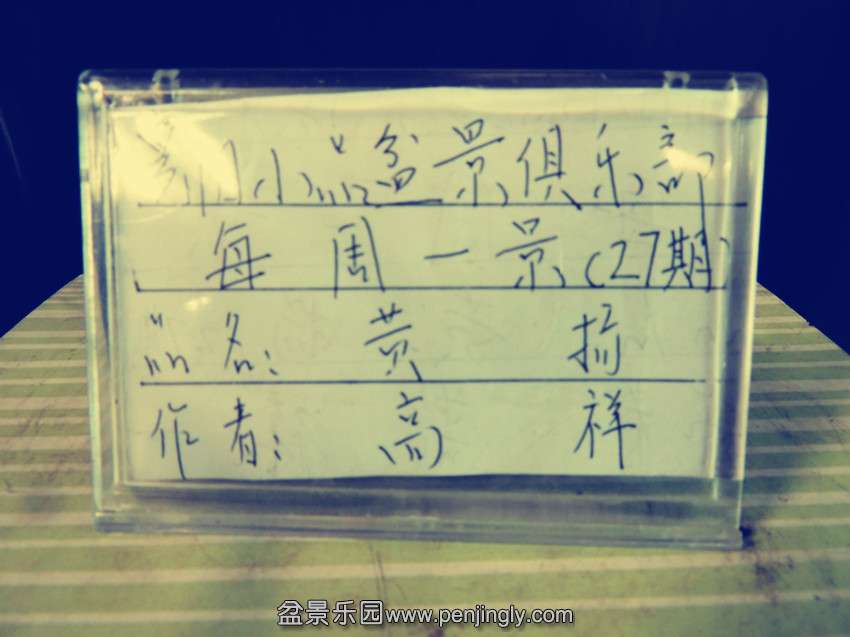 小品盆景俱乐部
每周一景(27期)
品名: 黄 杨
作者: 高 祥
盆景乐园www.penjingly.com